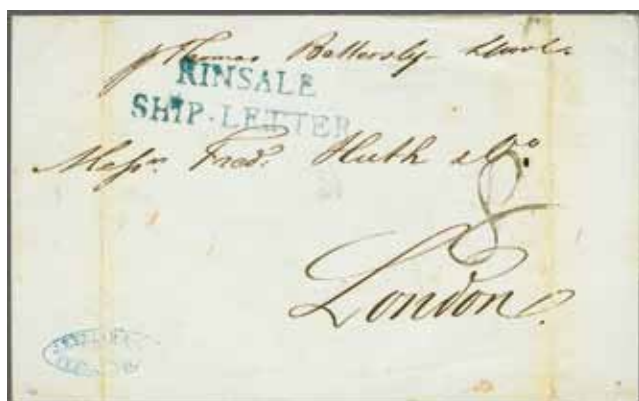 p Thomas Battersby
KINSALE
SHIP-LETTER
Messrs Fred. Huth & Co.
8
London.